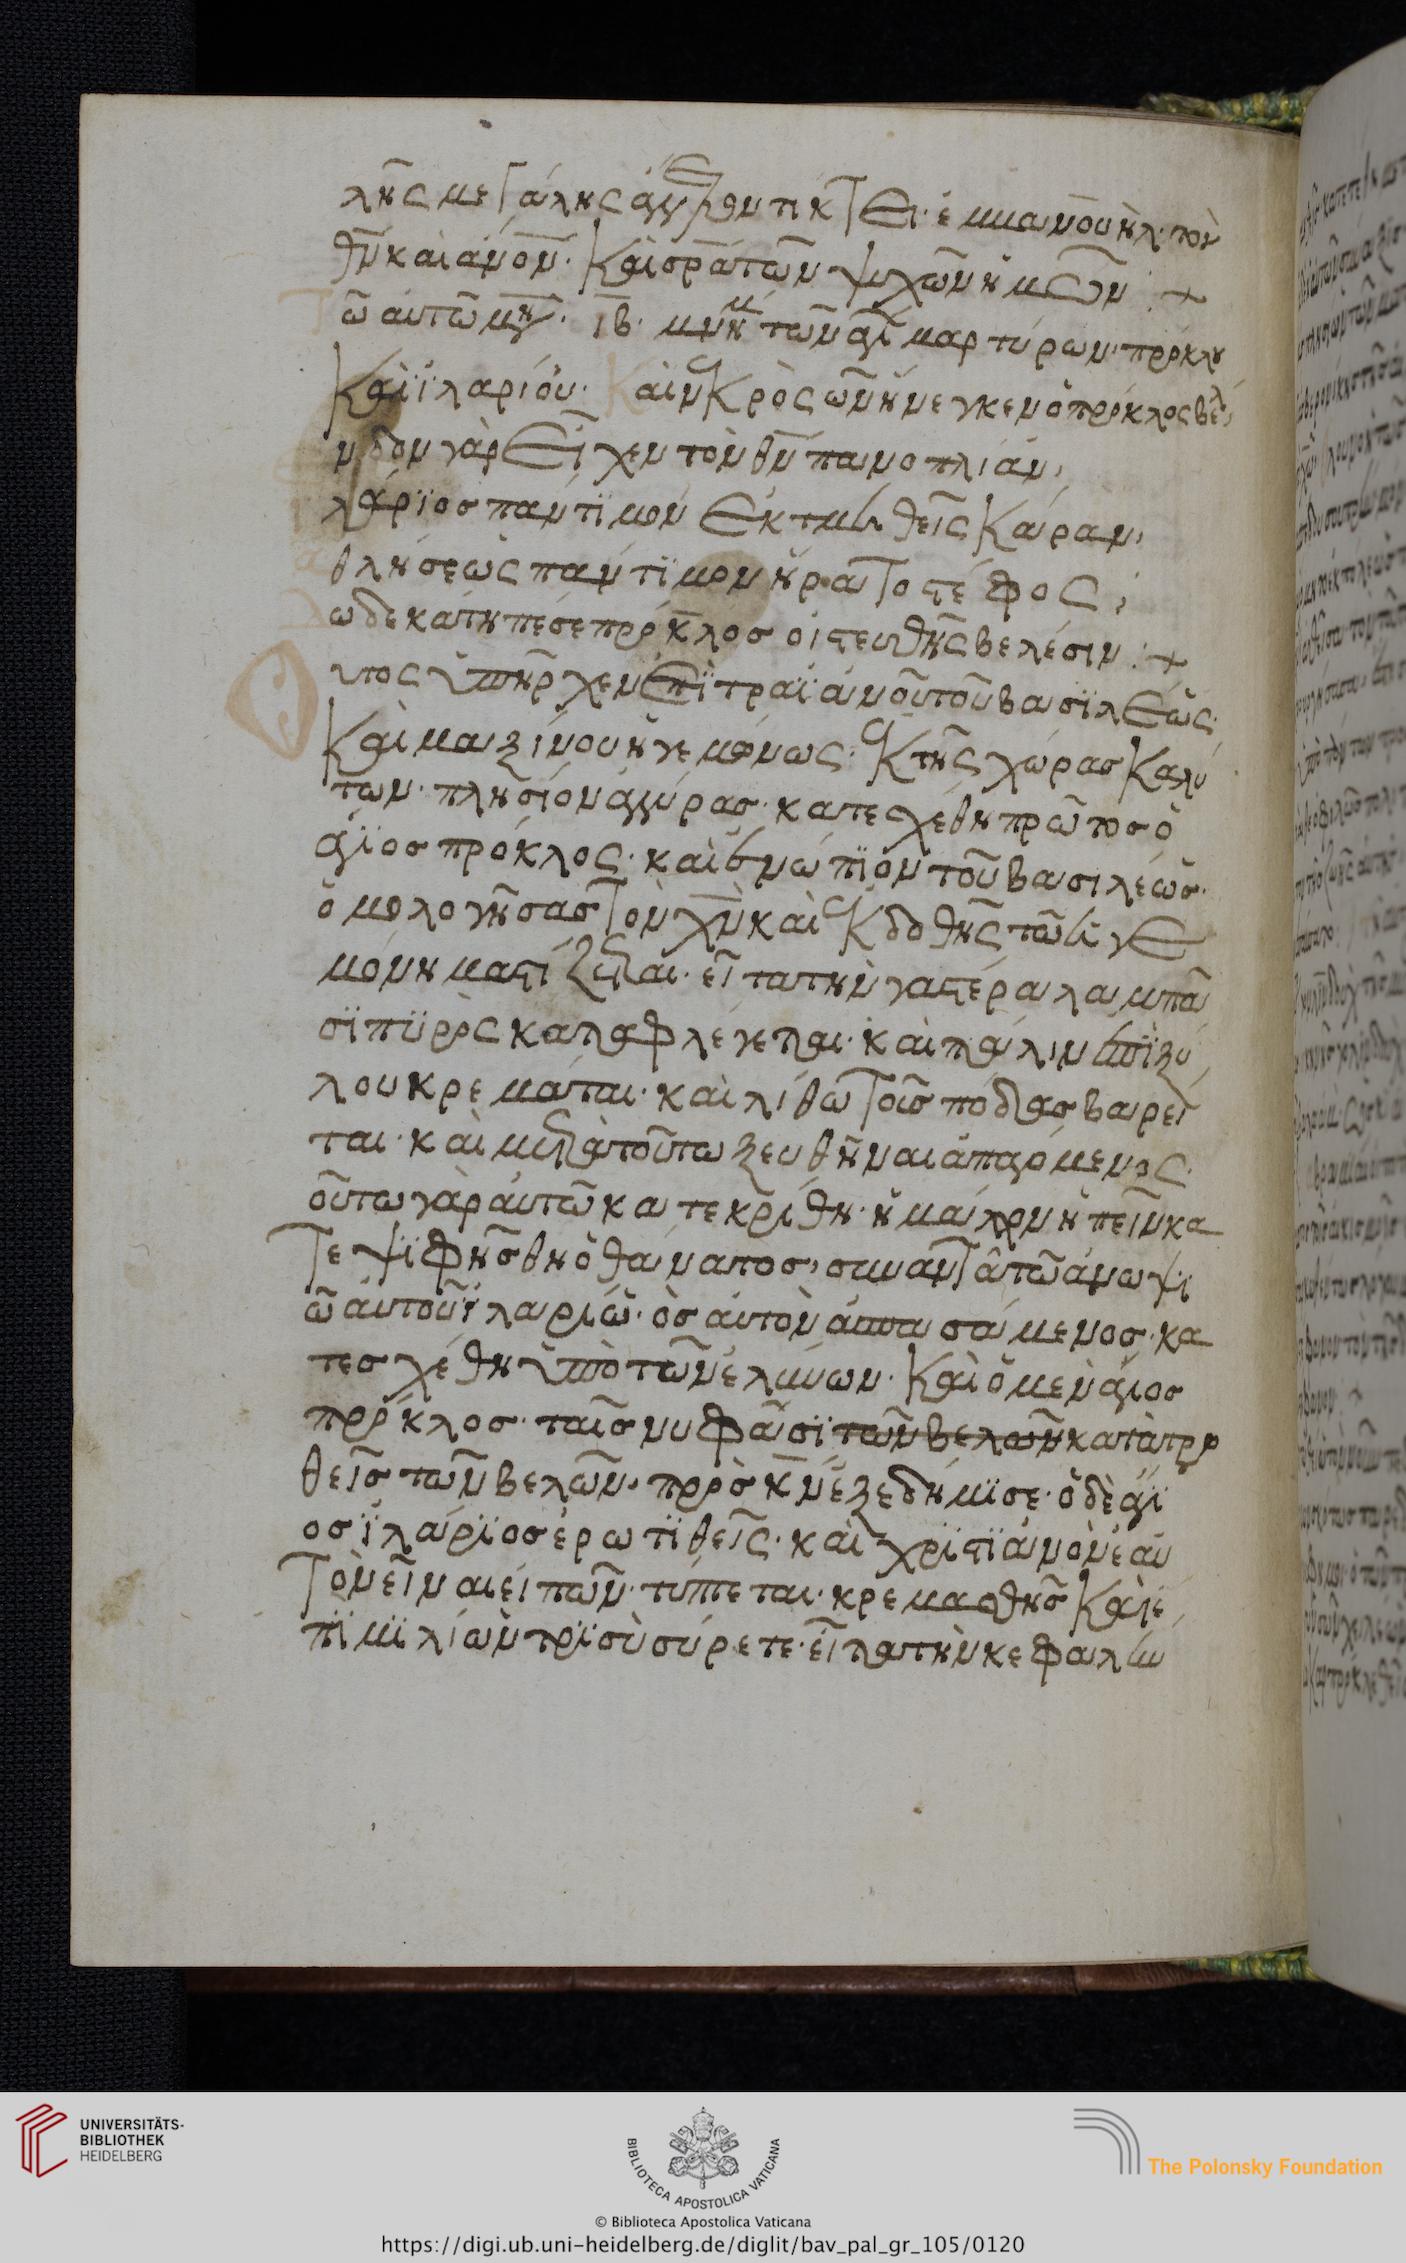 λῆς μεγάλης ἀγγελον τίκτει· ἐμμανουὴλ· τὸν
θν καὶ ἀνον· Καὶ σρα τῶν ψυχῶν ἡμῶν :+
Τῶ αὐτῶ μη· ιβ· μνήμη τῶν ἁγί μαρτύρων· πρόκλου
Καὶ ἱλαρίου· Καὶ νεκρὸς ὢν ἤνεγκεν ὁ πρόκλος βέλη,
ἔνδον γὰρ εἶχεν τὸν θν πανοπλίαν,
ἱλάριος πάντιμον ἐκτμηθεὶς κάραν,
ἀθλήσεως πάντιμον ἤρατο στέφος,
δωδεκάτη πέσε πρόκλος οἰστευθῆς βελέσιν :+
Οὗτος ὑπῆρχεν ἐπὶ τραϊανοῦ τοῦ βασϊλέως·
Καὶ μαξίμου ἡγεμόνως· ἐκ τῆς χώρας Καλύ
των· πλησίον ἀγύρας· κατεσχέθη πρῶτος ὁ
ἅγϊος πρόκλος· καὶ ἐνώπϊον τοῦ βασιλέως·
ὁμολογήσας τὸν χν καὶ ἐκδοθῆς τῶ ἡγε
μόνη μαστίζεται· εἶτα τὴν γαστέρα λαμπά
σϊ πϋρὸς καταφλέγεται· καὶ πάλιν ἐπϊ ξύ
λου κρεμάται· καὶ λίθω τοῖς πόδας βαρεῖ
ται· καὶ μετὰ τούτω ξευθῆναι ἀπαρόμενος·
οὕτω γὰρ αὐτῶ κατεκρίθη· ἡ μάλλον ἠπεῖν κα
τεψϊφήσθη ὁ θάνατος, συναντᾶ τῶ ἀνωψι
ῶ αὐτοῦ ϊλαρίω· ὃς αὐτὸν ἀσπασάμενος· κα
τεσχέθη ὑπὸ τῶν ἑλλήνων· Καὶ ὁ μὲν ἅγιος
πρόκλος· ταῖς νυφάσϊ τῶν βελῶν κατὰ τρο
θεὶς τῶν βελῶν· πρὸς κν ἐξεδήμϊσε· ὁ δὲ ἅγϊ
ος ϊλάρϊος ἐρωτϊθεὶς· καὶ χρϊστϊανὸν ἑαυ
τὸν εἶναι εἰπῶν· τύπτεται· κρεμασθῆς Καὶ ἐ
πϊ μϊλίων τρϊσὺ σύρετε· εἶτα τὴν κεφαλὴν
UNIVERSITÄTS-
BIBLIOTHEK
HEIDELBERG
BIBLIOTECA APOSTOLICA VATICANA
The Polonsky Foundation
© Biblioteca Apostolica Vaticana
https://digi.ub.uni-heidelberg.de/diglit/bav_pal_gr_105/0120